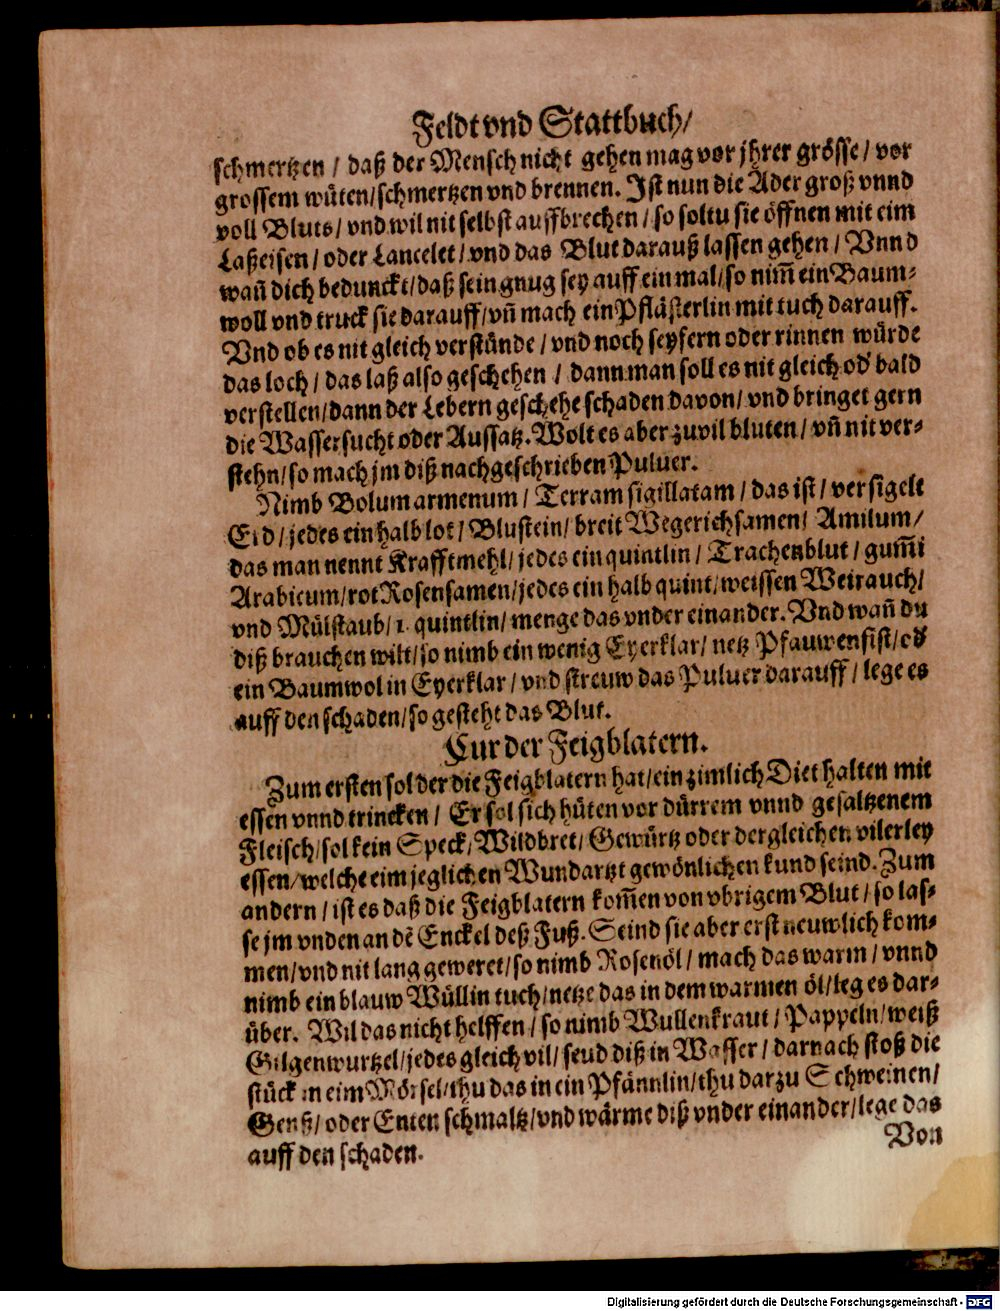 Feldt vnd Stattbuch/
schmertzen / daß der Mensch nicht gehen mag vor jhrer grösse / vor
grossem wüten/schmertzen vnd brennen. Ist nun die Ader groß vnnd
voll Bluts / vnd wil nit selbst auffbrechen / so soltu sie öffnen mit eim
Laßeisen / oder Lancelet / vnd das Blut darauß lassen gehen / Vnnd
wañ dich bedunckt/daß sein gnug sey auff ein mal/so nim̃ ein Baum-
woll vnd truck sie darauff/vñ mach ein Pflästerlin mit tuch darauff.
Vnd ob es nit gleich verstünde / vnd noch seyfern oder rinnen würde
das loch / das laß also geschehen / dann man soll es nit gleich od' bald
verstellen/dann der Lebern geschehe schaden davon/ vnd bringet gern
die Wassersucht oder Aussatz. Wolt es aber zuvil bluten / vñ nit ver-
stehn/so mach jm diß nachgeschrieben Puluer.
Nimb Bolum armenum / Terram sigillatam / das ist / versigelt
Erd / jedes ein halb lot / Blustein/ breit Wegerichsamen/ Amilum/
das man nennt Krafftmehl/ jedes ein quintlin / Trachenblut / gum̃i
Arabicum/rot Rosensamen/jedes ein halb quint/weissen Weirauch/
vnd Mülstaub/1. quintlin/ menge das vnder einander. Vnd wañ du
diß brauchen wilt/so nimb ein wenig Eyerklar/ netz Pfauwenfist/od'
ein Baumwol in Eyerklar / vnd streuw das Puluer darauff / lege es
auff den schaden/so gesteht das Blut.
Cur der Feigblatern.
Zum ersten sol der die Feigblatern hat/ein zimlich Diet halten mit
essen vnnd trincken / Er sol sich hüten vor dürrem vnnd gesaltzenem
Fleisch/sol kein Speck/Wildbret/ Gewürtz oder dergleichen vilerley
essen/welche eim jeglichen Wundartzt gewönlichen kund seind. Zum
andern / ist es daß die Feigblatern kom̃en von vbrigem Blut / so las-
se jm vnden an dē Enckel deß Fuß. Seind sie aber erst neuwlich kom-
men/vnd nit lang geweret/so nimb Rosenöl / mach das warm / vnnd
nimb ein blauw Wüllin tuch/netze das in dem warmen öl/leg es dar-
über. Wil das nicht helffen / so nimb Wullenkraut / Pappeln/weiß
Gilgenwurtzel/jedes gleich vil/ seud diß in Wasser / darnach stoß die
stück in eim Mörsel/thu das in ein Pfännlin/thu darzu Schweinen/
Genß/ oder Enten schmaltz/vnd wärme diß vnder einander/lege das
auff den schaden.
Von
Digitalisierung gefördert durch die Deutsche Forschungsgemeinschaft - DFG